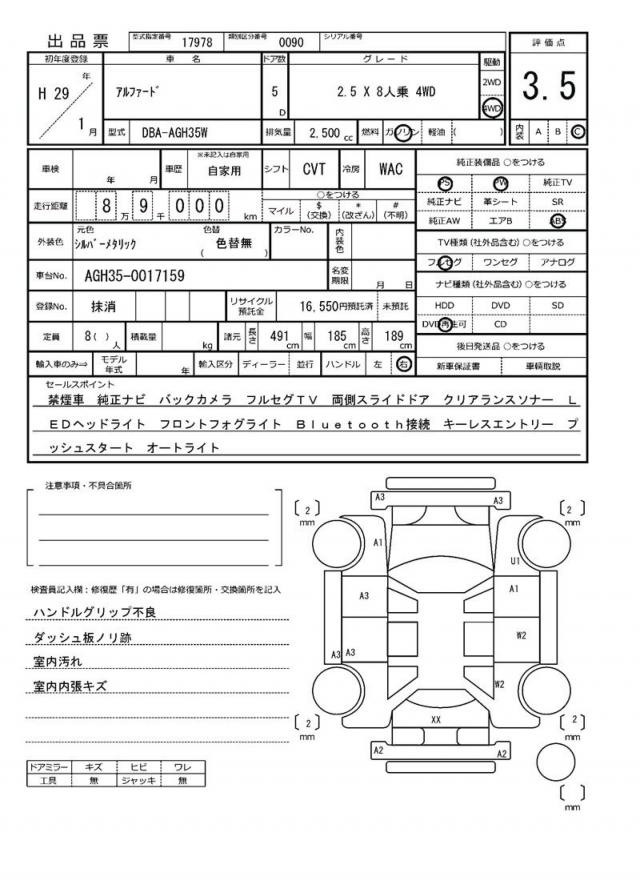 出品票 型式指定番号 17978 類別区分番号 0090 シリアル番号
初年度登録 車 名 ドア数 グレード 駆動 評価点
H 29 年 ｱﾙﾌｧｰﾄﾞ 5 D 2.5 X 8人乗 4WD 2WD 4WD 3.5
1 月 型式 DBA-AGH35W 排気量 2,500 cc 燃料 ガソリン 軽油 ( ) 内装 A B C
車検 年 月 車歴 ※未記入は自家用 自家用 シフト CVT 冷房 WAC 純正装備品 ○をつける
PS PW 純正TV
走行距離 8 万 9 千 0 0 0 km ○をつける
マイル $ (交換) * (改ざん) # (不明)
純正ナビ 革シート SR
純正AW エアB ABS
外装色 元色 ｼﾙﾊﾞｰﾒﾀﾘｯｸ 色替 ( 色替無 ) カラーNo. 内装色
TV種類 (社外品含む) ○をつける
フルセグ ワンセグ アナログ
車台No. AGH35-0017159 名変期限 月 日
ナビ種類 (社外品含む) ○をつける
登録No. 抹消 リサイクル預託金 16,550円預託済 未預託
HDD DVD SD
DVD再生可 CD
定員 8( ) 人 積載量 kg 諸元 長さ 491 cm 幅 185 cm 高さ 189 cm
後日発送品 ○をつける
輸入車のみ⇒ モデル年式 年 輸入区分 ディーラー 並行 ハンドル 左 右 新車保証書 車輌取説
セールスポイント
禁煙車 純正ナビ バックカメラ フルセグTV 両側スライドドア クリアランスソナー L
EDヘッドライト フロントフォグライト Bluetooth接続 キーレスエントリー プ
ッシュスタート オートライト
注意事項・不具合箇所
検査員記入欄：修復歴「有」の場合は修復箇所・交換箇所を記入
ハンドルグリップ不良
ダッシュ板ノリ跡
室内汚れ
室内内張キズ
ドアミラー キズ ヒビ ワレ
工具 無 ジャッキ 無
A3 A3
[ 2 ] mm [ 2 ] mm
A1 U1
A3 A1
W2
A3 A3
W2
XX
[ 2 ] mm [ 2 ] mm
A2 A2
[ ] mm